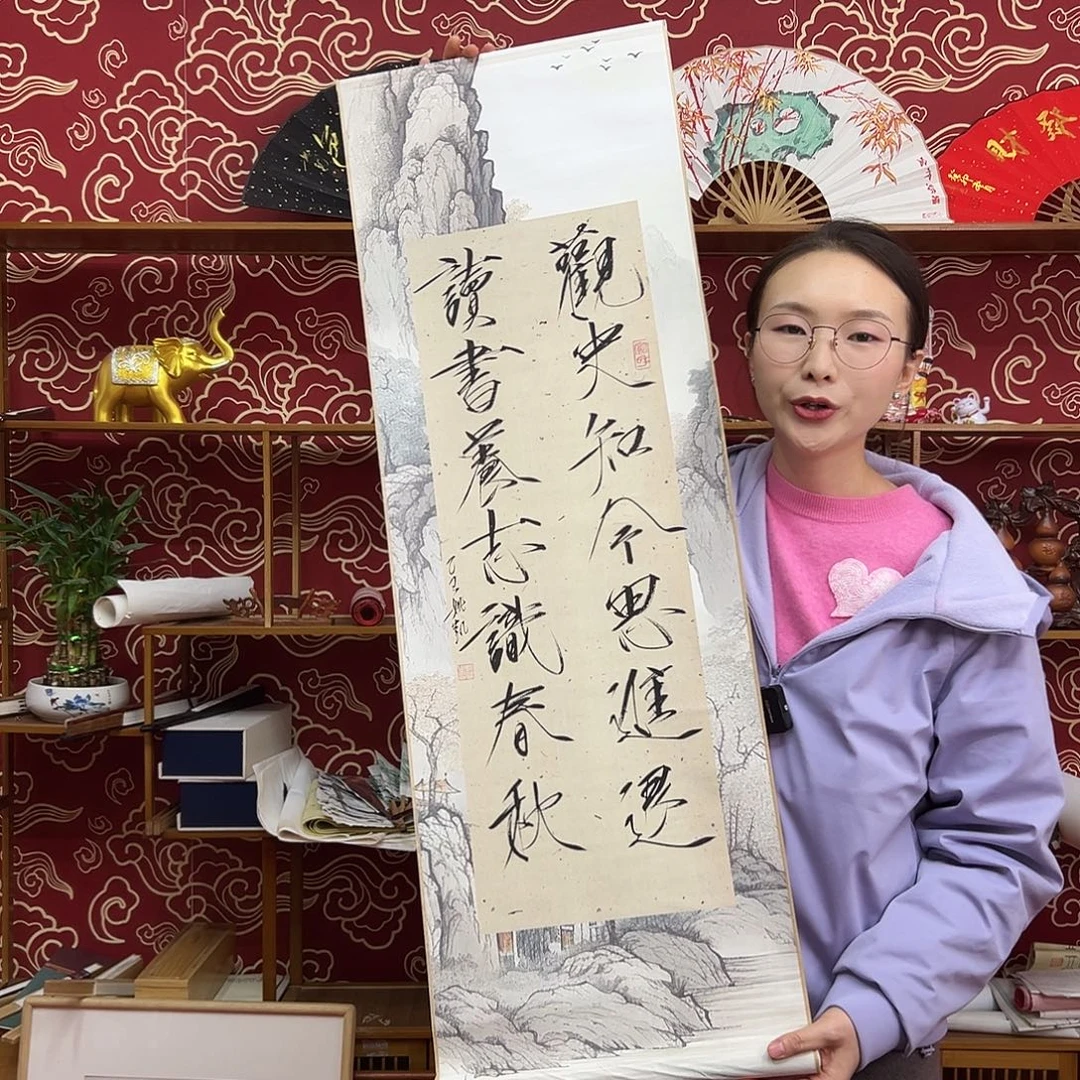 觀史知今思進退
讀書養志識春秋
發財